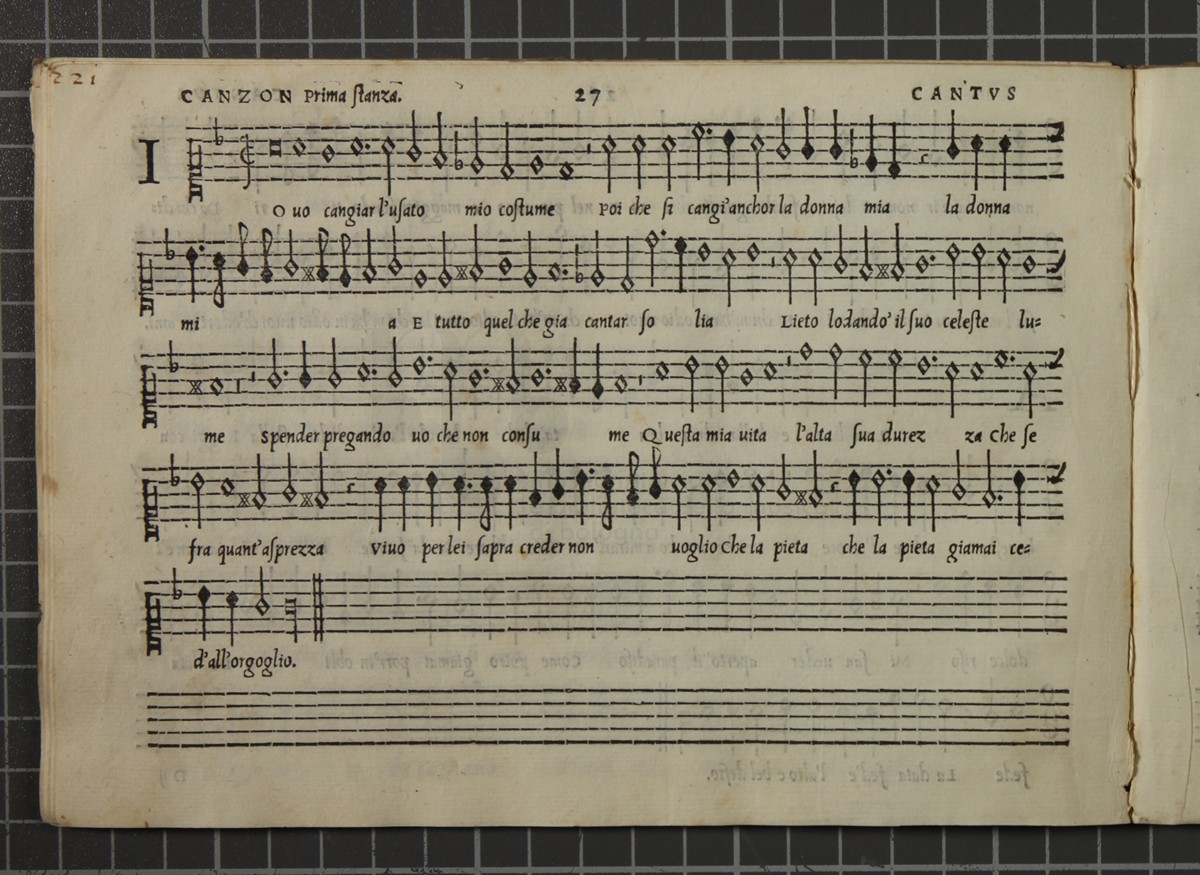 221
CANZON Prima stanza. 27 CANTVS
IO uo cangiar l'usato mio costume Poi che si cangi'anchor la donna mia la donna
mi a E tutto quel che gia cantar so lia Lieto lodando' il suo celeste lu=
me Spender pregando uo che non consu me Questa mia uita l'alta sua durez za Che se
fra quant'asprezza Viuo per lei sapra creder non uoglio Che la pieta che la pieta giamai ce=
d'all'orgoglio.